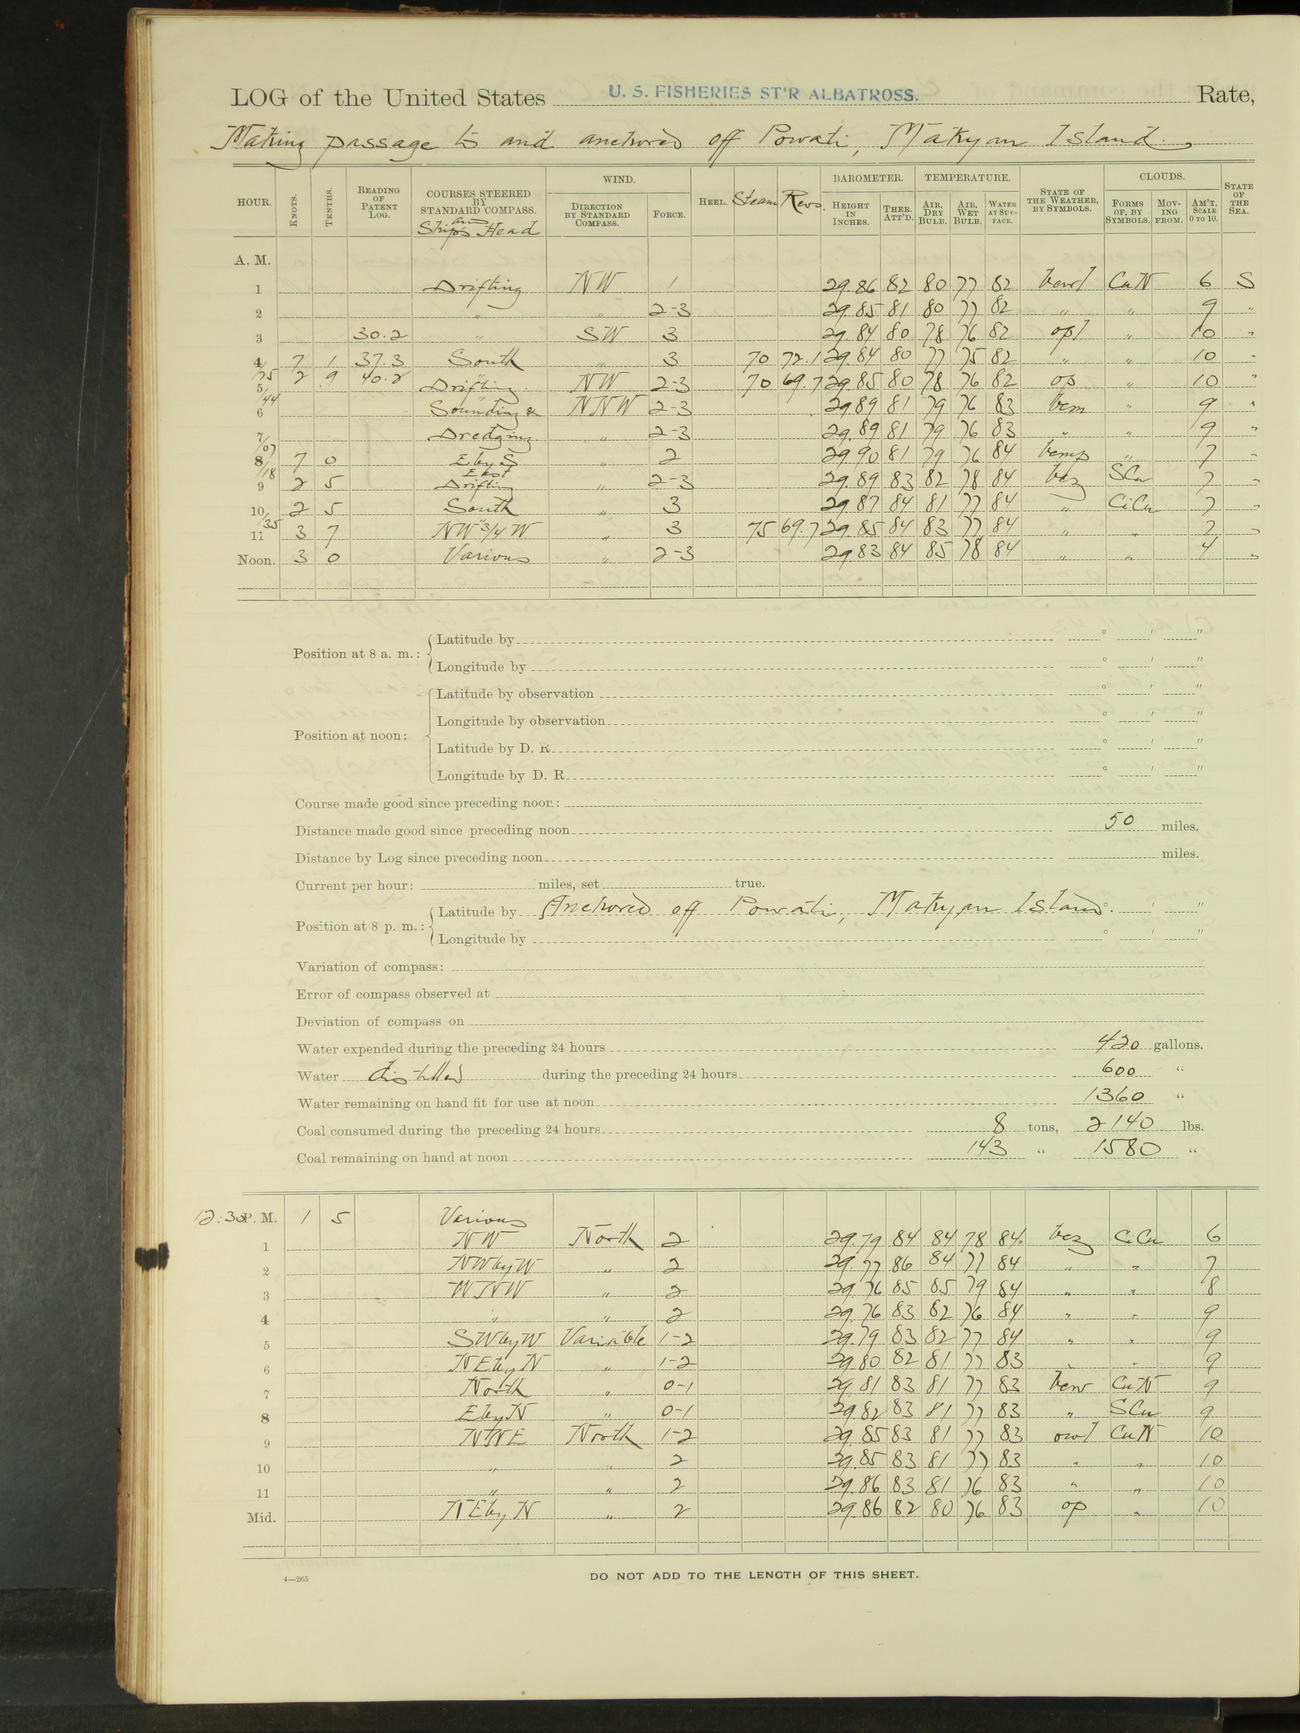 LOG of the United States U. S. FISHERIES ST'R ALBATROSS. Rate,
Making passage to and anchored off Powati, Makyan Island.
HOUR. KNOTS. TENTHS. READING OF PATENT LOG. COURSES STEERED BY STANDARD COMPASS. and Ship's Head WIND. DIRECTION BY STANDARD COMPASS. FORCE. HEEL. Steam Revs. BAROMETER. HEIGHT IN INCHES. THER. ATT'D. TEMPERATURE. AIR, DRY BULB. AIR, WET BULB. WATER AT SURFACE. STATE OF THE WEATHER, BY SYMBOLS. CLOUDS. FORMS OF, BY SYMBOLS. MOVING FROM. AM'T. SCALE 0 TO 10. STATE OF THE SEA.
A. M.
1 Drifting NW 1 29.86 82 80 77 82 CuN 6 S
2 " " 2-3 29.85 81 80 77 82 " " 9 "
3 30.2 " SW 3 29.84 80 78 76 82 opl " 10 "
4 7 1 37.3 South " 3 70 72.1 29.84 80 77 75 82 " " 10 "
5 2 9 40.2 Drifting NW 2-3 70 69.7 29.85 80 78 76 82 op " 10 "
6 Sounding & NNW 2-3 29.89 81 79 76 83 bcm " 9 "
7 Dredging " 2-3 29.89 81 79 76 83 " " 9 "
8 7 0 E by S " 2 29.90 81 79 76 84 bcmp " 7 "
9 2 5 East Drifting " 2-3 29.89 83 82 78 84 bcz SCu 7 "
10 2 5 South " 3 29.87 84 81 77 84 " CiCu 7 "
11 3 7 NW 3/4 W " 3 75 69.7 29.85 84 83 77 84 " " 7 "
Noon. 3 0 Various " 2-3 29.83 84 85 78 84 " " 4 "
Position at 8 a. m.: Latitude by ° ' "
Longitude by ° ' "
Position at noon: Latitude by observation ° ' "
Longitude by observation ° ' "
Latitude by D. R. ° ' "
Longitude by D. R. ° ' "
Course made good since preceding noon:
Distance made good since preceding noon 50 miles.
Distance by Log since preceding noon miles.
Current per hour: miles, set true.
Position at 8 p. m.: Latitude by Anchored off Powati, Makyan Island. ° ' "
Longitude by ° ' "
Variation of compass:
Error of compass observed at
Deviation of compass on
Water expended during the preceding 24 hours 420 gallons.
Water distilled during the preceding 24 hours 600 "
Water remaining on hand fit for use at noon 1360 "
Coal consumed during the preceding 24 hours 8 tons, 2140 lbs.
Coal remaining on hand at noon 143 " 1580 "
12:30 P. M. 1 5 Various
1 NW North 2 29.79 84 84 78 84 bcz CiCu 6
2 NW by W " 2 29.77 86 84 77 84 " " 7
3 WNW " 2 29.76 85 85 79 84 " " 8
4 " " 2 29.76 83 82 76 84 " " 9
5 SW by W Variable 1-2 29.79 83 82 77 84 " " 9
6 NE by N " 1-2 29.80 82 81 77 83 " " 9
7 North " 0-1 29.81 83 81 77 83 CuN 9
8 E by N " 0-1 29.82 83 81 77 83 " SCu 9
9 NNE North 1-2 29.85 83 81 77 83 owl CuN 10
10 " " 2 29.85 83 81 77 83 " " 10
11 " " 2 29.86 83 81 76 83 " " 10
Mid. NE by N " 2 29.86 82 80 76 83 op " 10
4—265
DO NOT ADD TO THE LENGTH OF THIS SHEET.